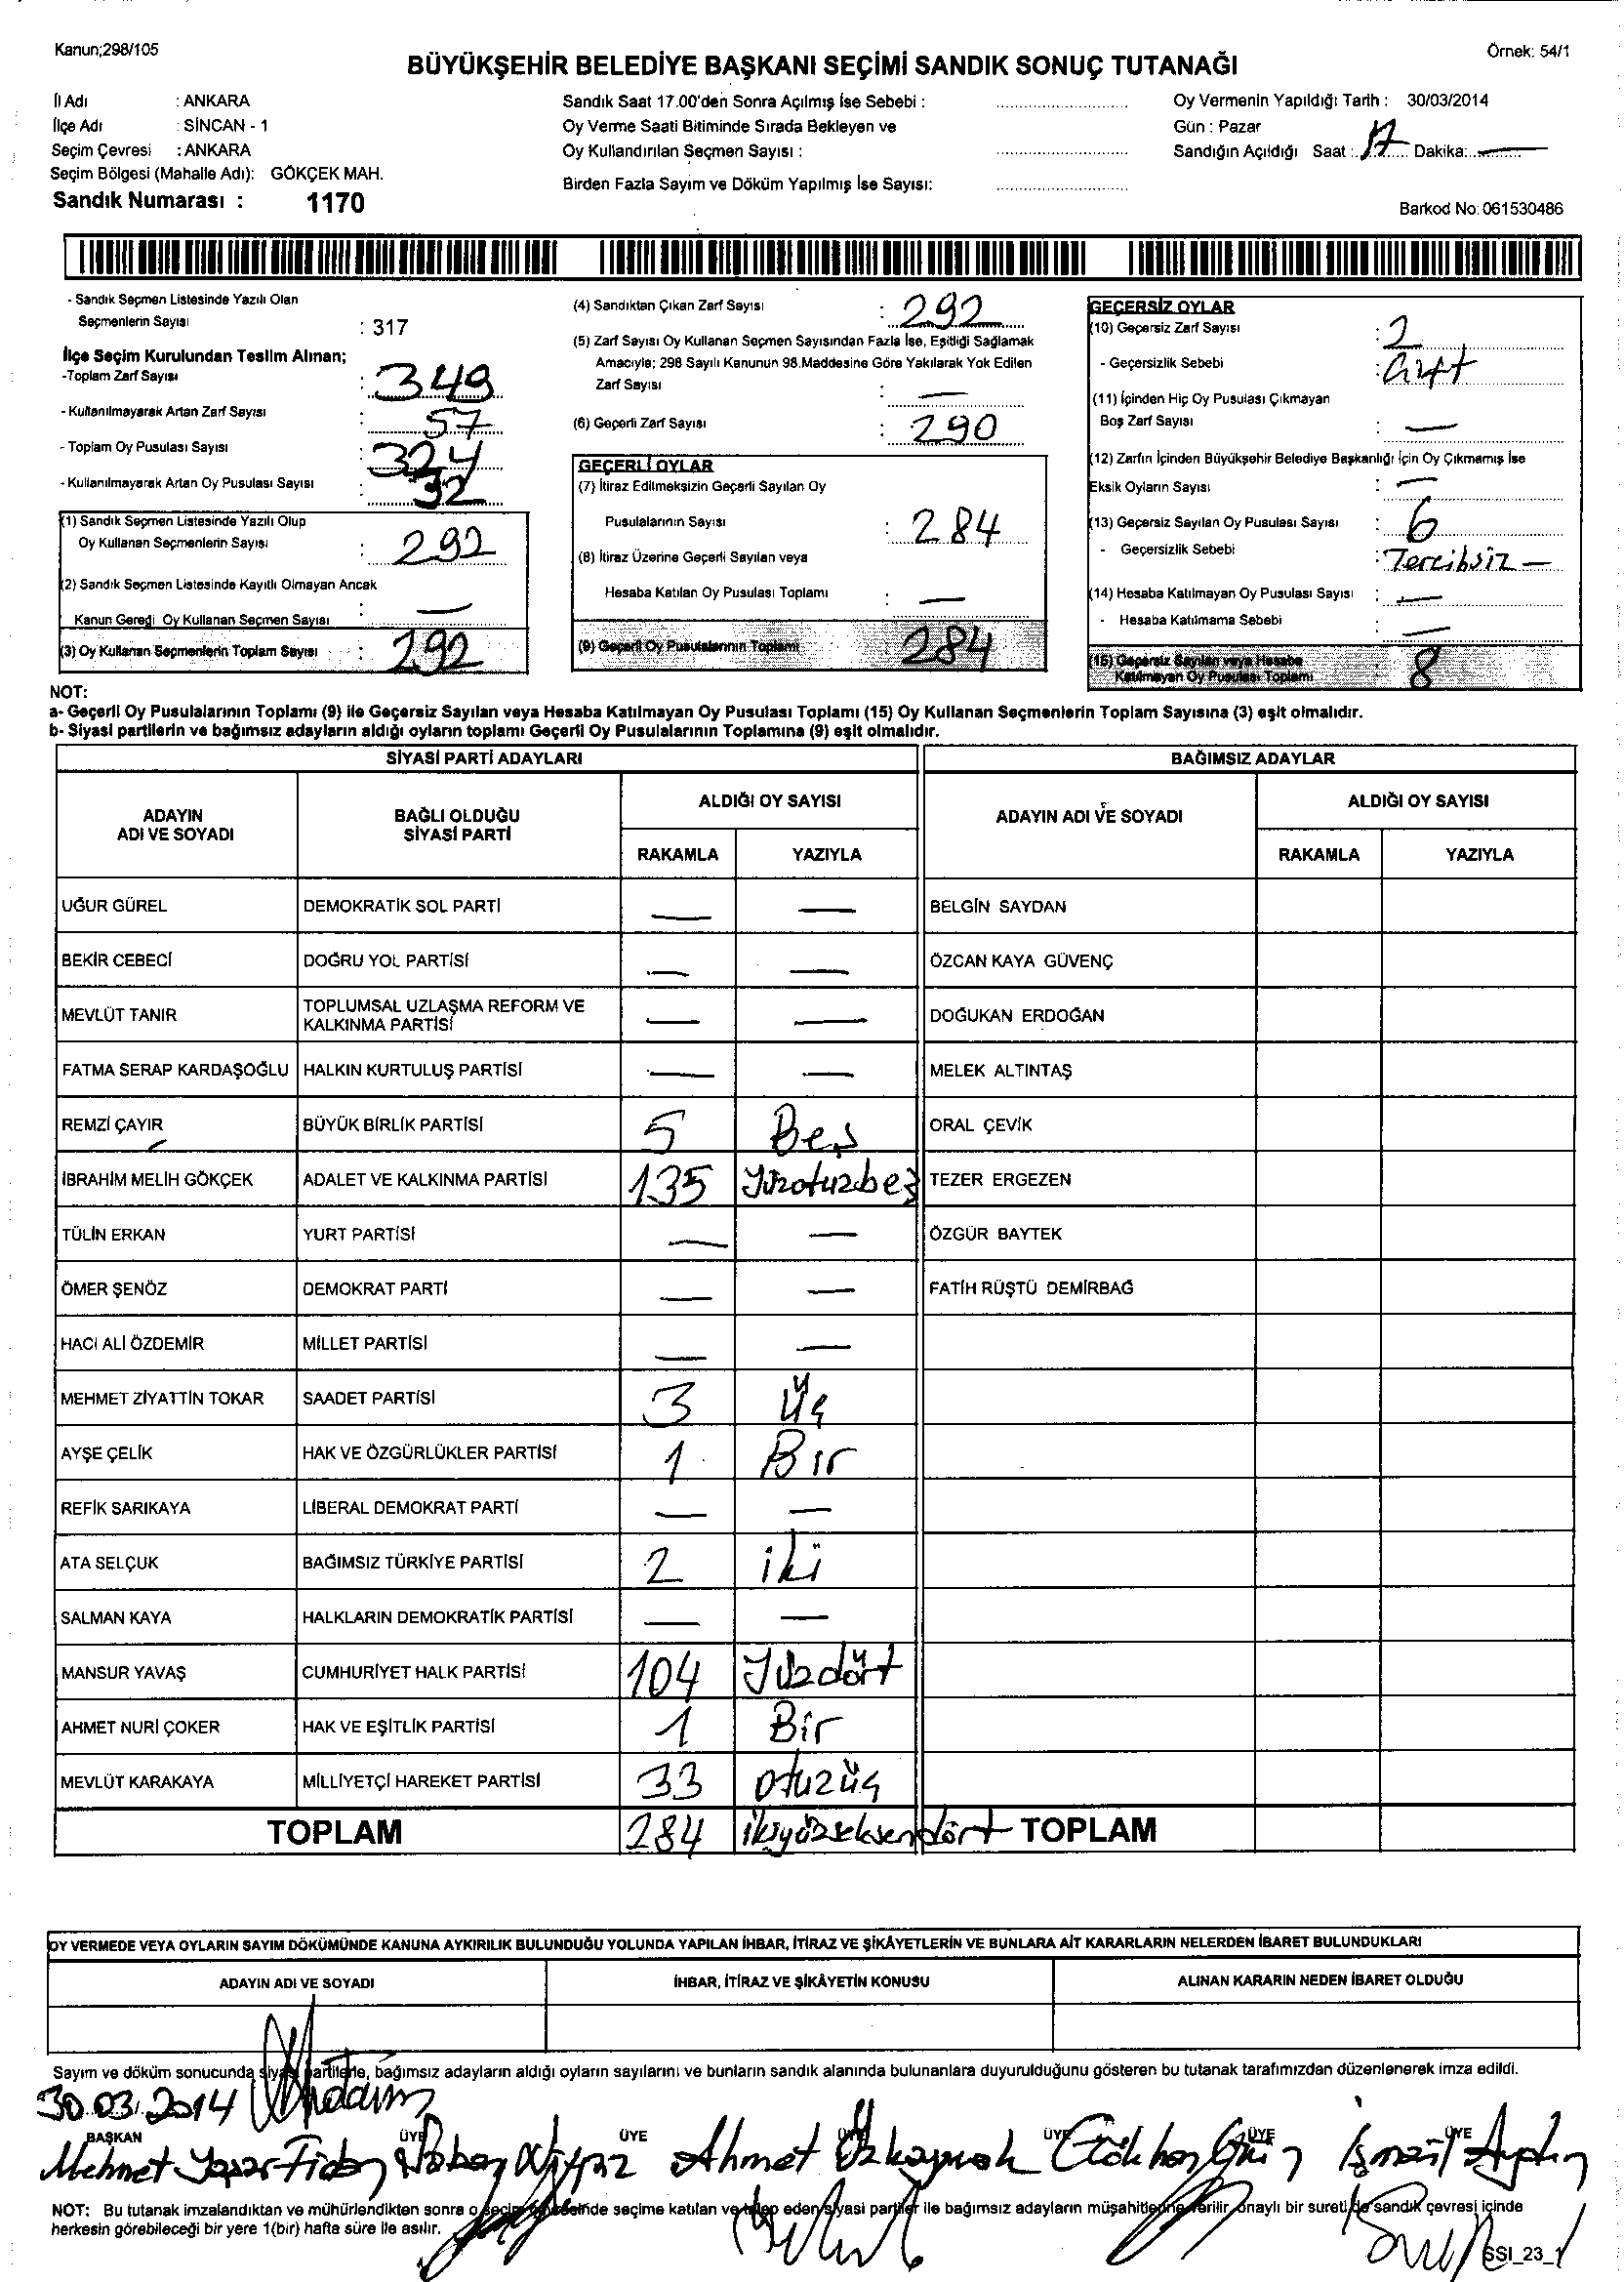 Kanun;298/105
Örnek: 54/1
BÜYÜKŞEHİR BELEDİYE BAŞKANI SEÇİMİ SANDIK SONUÇ TUTANAĞI
İl Adı : ANKARA
İlçe Adı : SİNCAN - 1
Seçim Çevresi : ANKARA
Seçim Bölgesi (Mahalle Adı): GÖKÇEK MAH.
Sandık Numarası : 1170
Sandık Saat 17.00'den Sonra Açılmış İse Sebebi :
Oy Verme Saati Bitiminde Sırada Bekleyen ve
Oy Kullandırılan Seçmen Sayısı :
Birden Fazla Sayım ve Döküm Yapılmış İse Sayısı:
Oy Vermenin Yapıldığı Tarih : 30/03/2014
Gün : Pazar
Sandığın Açıldığı Saat : 17 Dakika: —
Barkod No: 061530486
- Sandık Seçmen Listesinde Yazılı Olan
Seçmenlerin Sayısı : 317
İlçe Seçim Kurulundan Teslim Alınan;
-Toplam Zarf Sayısı : 349
- Kullanılmayarak Artan Zarf Sayısı : 57
- Toplam Oy Pusulası Sayısı : 324
- Kullanılmayarak Artan Oy Pusulası Sayısı : 32
(1) Sandık Seçmen Listesinde Yazılı Olup
Oy Kullanan Seçmenlerin Sayısı : 292
(2) Sandık Seçmen Listesinde Kayıtlı Olmayan Ancak
Kanun Gereği Oy Kullanan Seçmen Sayısı : —
(3) Oy Kullanan Seçmenlerin Toplam Sayısı : 292
(4) Sandıktan Çıkan Zarf Sayısı : 292
(5) Zarf Sayısı Oy Kullanan Seçmen Sayısından Fazla İse, Eşitliği Sağlamak
Amacıyla; 298 Sayılı Kanunun 98.Maddesine Göre Yakılarak Yok Edilen
Zarf Sayısı : —
(6) Geçerli Zarf Sayısı : 290
GEÇERLİ OYLAR
(7) İtiraz Edilmeksizin Geçerli Sayılan Oy
Pusulalarının Sayısı : 284
(8) İtiraz Üzerine Geçerli Sayılan veya
Hesaba Katılan Oy Pusulası Toplamı : —
(9) Geçerli Oy Pusulalarının Toplamı 284
GEÇERSİZ OYLAR
(10) Geçersiz Zarf Sayısı : 2
- Geçersizlik Sebebi : Çift
(11) İçinden Hiç Oy Pusulası Çıkmayan
Boş Zarf Sayısı : —
(12) Zarfın İçinden Büyükşehir Belediye Başkanlığı İçin Oy Çıkmamış İse
Eksik Oyların Sayısı : —
(13) Geçersiz Sayılan Oy Pusulası Sayısı : 6
- Geçersizlik Sebebi : Tercihsiz —
(14) Hesaba Katılmayan Oy Pusulası Sayısı : —
- Hesaba Katılmama Sebebi : —
(15) Geçersiz Sayılan veya Hesaba
Katılmayan Oy Pusulası Toplamı 8
NOT:
a- Geçerli Oy Pusulalarının Toplamı (9) ile Geçersiz Sayılan veya Hesaba Katılmayan Oy Pusulası Toplamı (15) Oy Kullanan Seçmenlerin Toplam Sayısına (3) eşit olmalıdır.
b- Siyasi partilerin ve bağımsız adayların aldığı oyların toplamı Geçerli Oy Pusulalarının Toplamına (9) eşit olmalıdır.
SİYASİ PARTİ ADAYLARI BAĞIMSIZ ADAYLAR
ADAYIN ADI VE SOYADI BAĞLI OLDUĞU SİYASİ PARTİ ALDIĞI OY SAYISI ADAYIN ADI VE SOYADI ALDIĞI OY SAYISI
RAKAMLA YAZIYLA RAKAMLA YAZIYLA
UĞUR GÜREL DEMOKRATİK SOL PARTİ — — BELGİN SAYDAN
BEKİR CEBECİ DOĞRU YOL PARTİSİ — — ÖZCAN KAYA GÜVENÇ
MEVLÜT TANIR TOPLUMSAL UZLAŞMA REFORM VE KALKINMA PARTİSİ — — DOĞUKAN ERDOĞAN
FATMA SERAP KARDAŞOĞLU HALKIN KURTULUŞ PARTİSİ — — MELEK ALTINTAŞ
REMZİ ÇAYIR BÜYÜK BİRLİK PARTİSİ 5 Beş ORAL ÇEVİK
İBRAHİM MELİH GÖKÇEK ADALET VE KALKINMA PARTİSİ 135 Yüzotuzbeş TEZER ERGEZEN
TÜLİN ERKAN YURT PARTİSİ — — ÖZGÜR BAYTEK
ÖMER ŞENÖZ DEMOKRAT PARTİ — — FATİH RÜŞTÜ DEMİRBAĞ
HACI ALİ ÖZDEMİR MİLLET PARTİSİ — —
MEHMET ZİYATTİN TOKAR SAADET PARTİSİ 3 Üç
AYŞE ÇELİK HAK VE ÖZGÜRLÜKLER PARTİSİ 1 Bir
REFİK SARIKAYA LİBERAL DEMOKRAT PARTİ — —
ATA SELÇUK BAĞIMSIZ TÜRKİYE PARTİSİ 2 iki
SALMAN KAYA HALKLARIN DEMOKRATİK PARTİSİ — —
MANSUR YAVAŞ CUMHURİYET HALK PARTİSİ 104 Yüzdört
AHMET NURİ ÇOKER HAK VE EŞİTLİK PARTİSİ 1 Bir
MEVLÜT KARAKAYA MİLLİYETÇİ HAREKET PARTİSİ 33 otuzüç
TOPLAM 284 ikiyüzseksendört TOPLAM
OY VERMEDE VEYA OYLARIN SAYIM DÖKÜMÜNDE KANUNA AYKIRILIK BULUNDUĞU YOLUNDA YAPILAN İHBAR, İTİRAZ VE ŞİKÂYETLERİN VE BUNLARA AİT KARARLARIN NELERDEN İBARET BULUNDUKLARI
ADAYIN ADI VE SOYADI İHBAR, İTİRAZ VE ŞİKÂYETİN KONUSU ALINAN KARARIN NEDEN İBARET OLDUĞU
Sayım ve döküm sonucunda siyasi partilerle, bağımsız adayların aldığı oyların sayılarını ve bunların sandık alanında bulunanlara duyurulduğunu gösteren bu tutanak tarafımızdan düzenlenerek imza edildi.
30.03.2014
BAŞKAN ÜYE ÜYE ÜYE ÜYE ÜYE
Mehmet Yaşar Fidan Ahmet Özkaynak Gökhan İsmail Aydın
NOT: Bu tutanak imzalandıktan ve mühürlendikten sonra o seçim çevresinde seçime katılan ve talep eden siyasi partiler ile bağımsız adayların müşahitlerine verilir, onaylı bir sureti de sandık çevresi içinde
herkesin görebileceği bir yere 1(bir) hafta süre ile asılır.
SSI_23_1